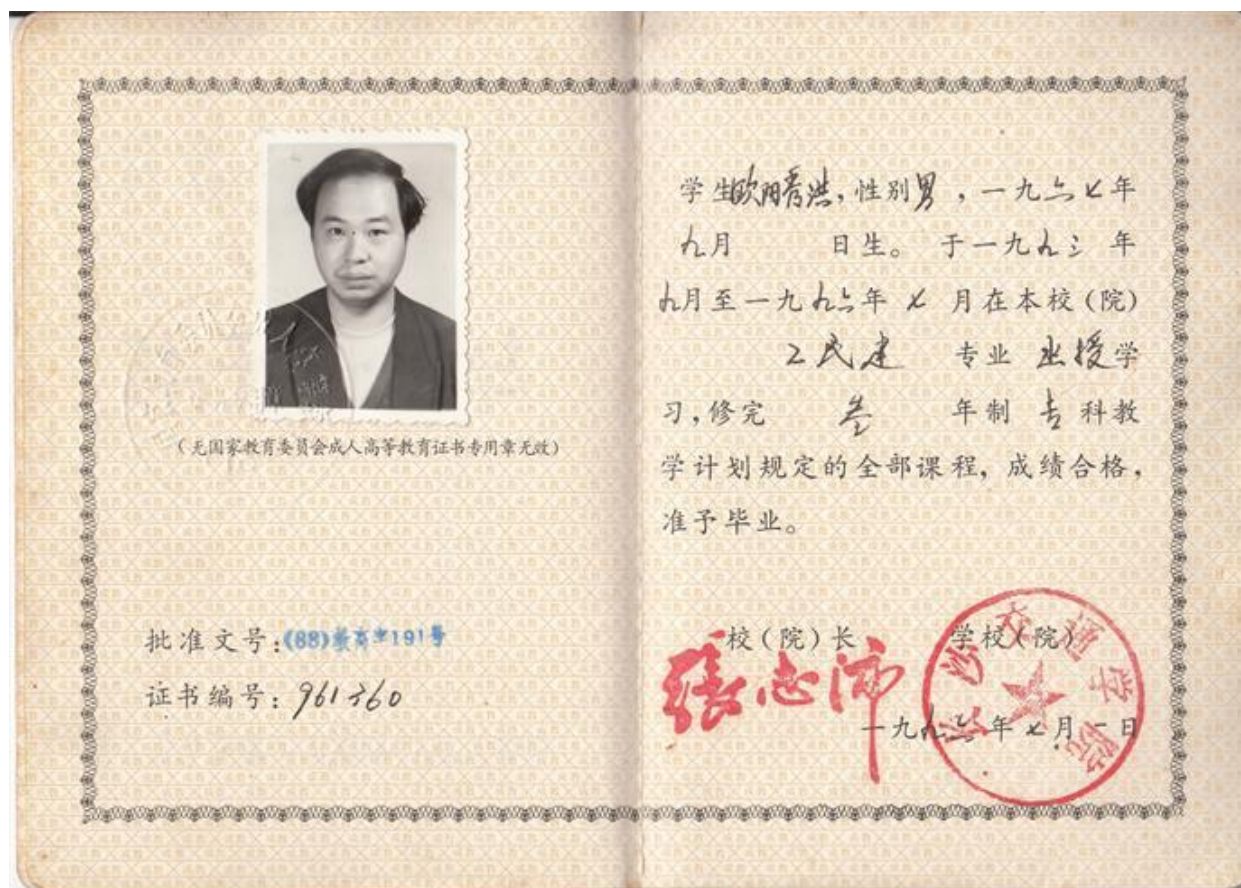 (无国家教育委员会成人高等教育证书专用章无效)
批准文号:(88)教高字191号
证书编号:961360
学生欧阳晋洪,性别男,一九六七年
九月 日生。于一九九三年
九月至一九九六年七月在本校(院)
工民建 专业 函授学
习,修完 叁 年制 专科教
学计划规定的全部课程,成绩合格,
准予毕业。
校(院)长 学校(院)
张志沛
长沙交通学院
一九九六年七月一日